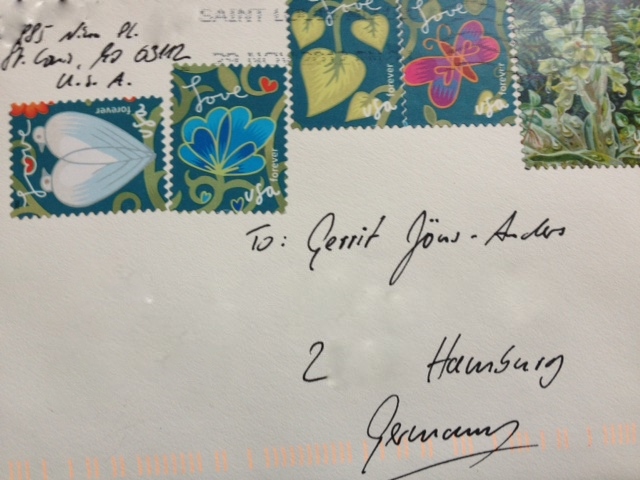 St. Louis, MO 63112
U.S.A.
SAINT L
29 NOV
Love
forever
usa
Love
usa forever
usa forever
Love
usa forever
To: Gerrit Jöns-Anders
2 Hamburg
Germany